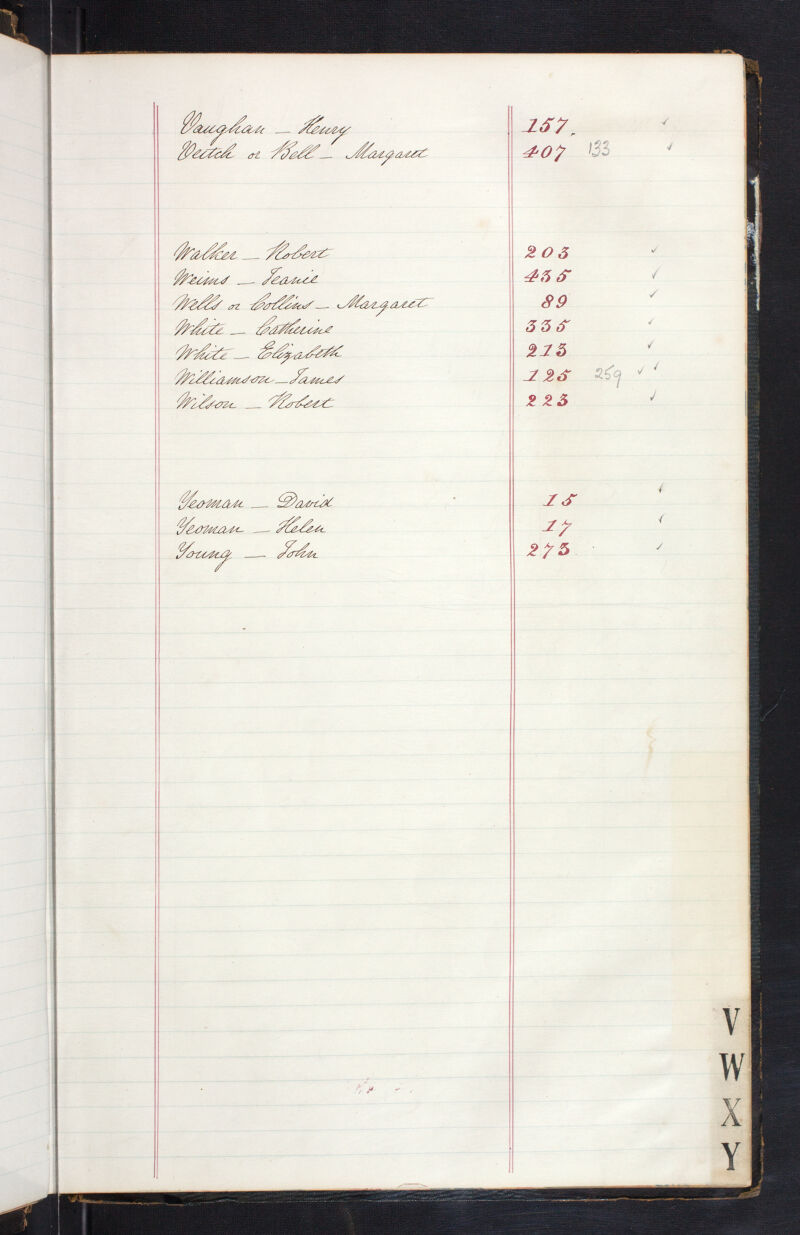 Vaughan — Henry 157.
Veitch or Bell — Margaret 407 133
Walker — Robert 203
Weims — Jeanie 435
Wells or Collins — Margaret 89
White — Catherine 335
White — Elizabeth 213
Williamson — James 125 259
Wilson — Robert 223
Yeoman — David 15
Yeoman — Helen 17
Young — John 273
V
W
X
Y